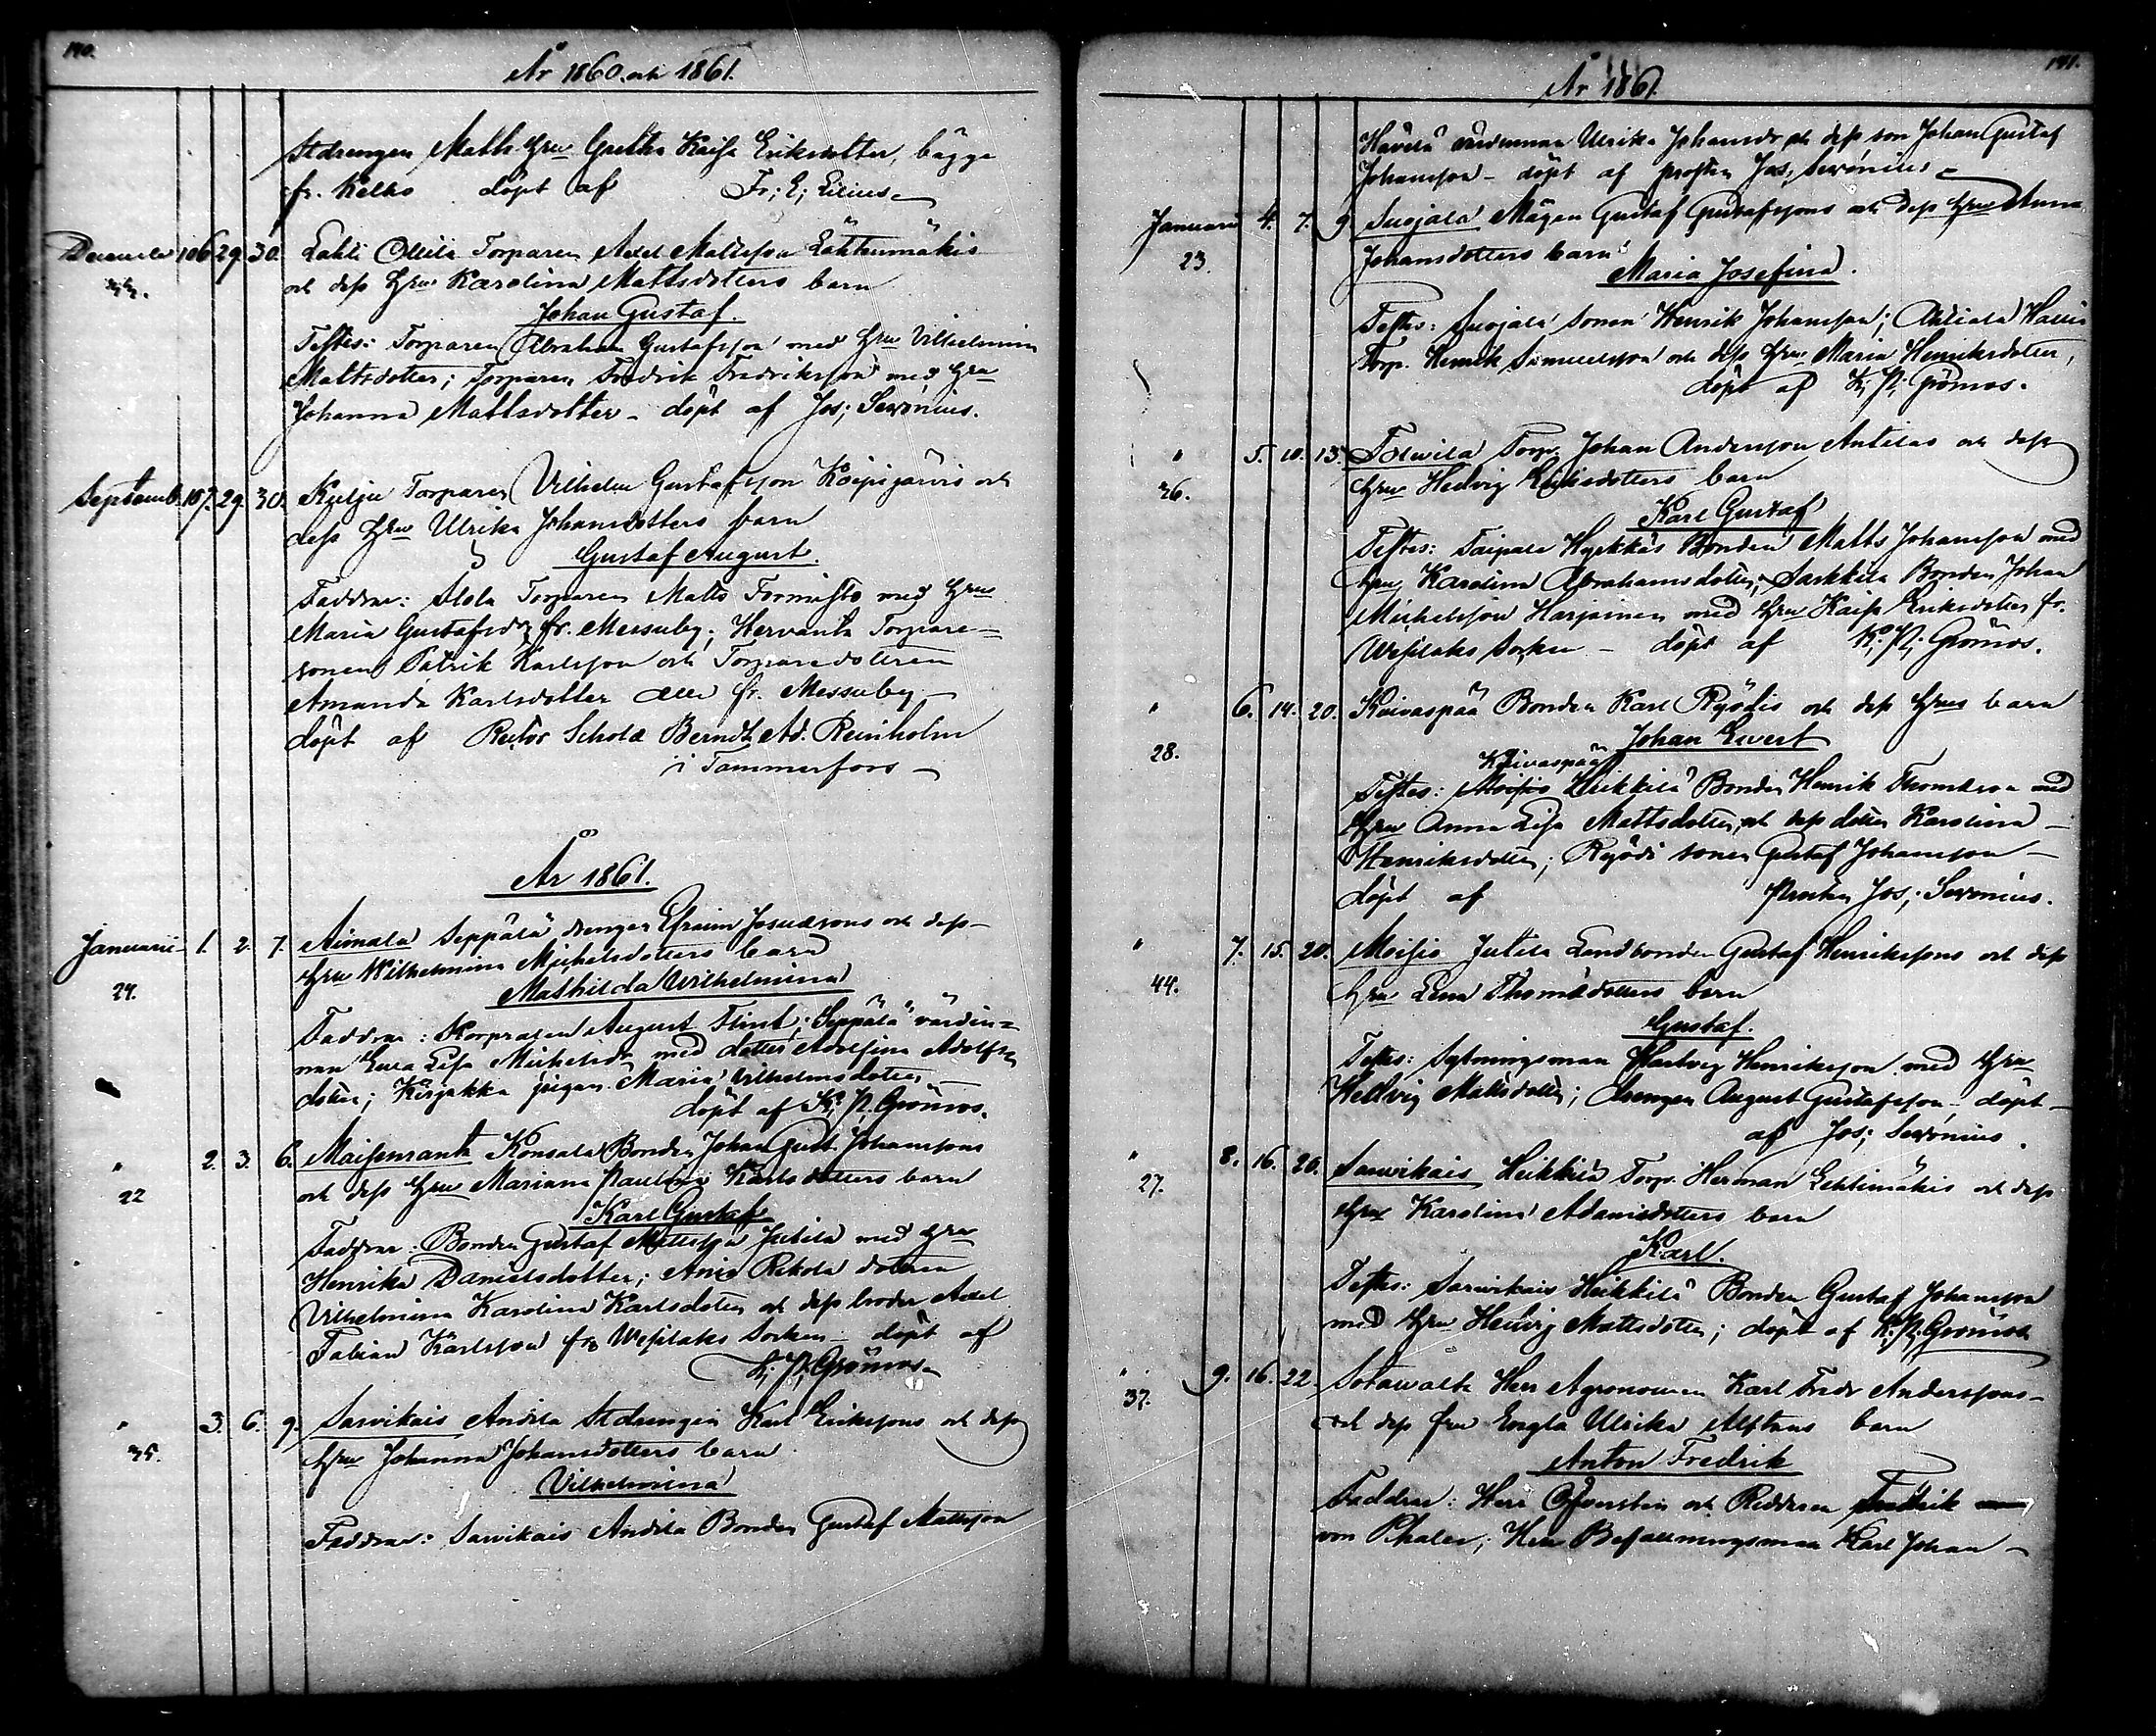 140.
År 1860. och 1861.
Stdrengen Matts hru Gretha Kaisa Eriksdotter, bägge
fr. Kelho döpt af Fr; E; Lilius
December 106 29. 30. Lahti Ollila Torparen Axel Mattsson Lähteenmäkis
33. och dess hru Karolina Mattsdotters barn
Johan Gustaf.
Testes: Torparen Abraham Gustafsson med hru Vilhelmina
Mattsdotter; Torparen Fredrik Fredriksson med hru
Johanna Mattsdotter - döpt af Jos; Seronius.
Septemb. 107. 29. 30. Kulju Torparen Vilhelm Gustafsson Koipijärvis och
dess hru Ulrika Johansdotters barn
Gustaf August.
Faddrar: Stola Torparen Matts Tormisto med hru
Maria Gustafsdr fr. Messuby; Hervanta Torpare=
sonen Patrik Karlsson och Torparedotteren
Amanda Karlsdotter alla fr. Messuby -
döpt af Rector Schola Berndt Ad. Reinholm
i Tammerfors -
År 1861.
Januarii 1. 2. 7. Aimala Seppälä drengen Efraim Josuasons och dess
24. hru Wilhelmina Michelsdotters barn
Mathilda Wilhelmina
Faddrar: Korpralen August Flint; Seppälä värdin=
nan Eva Lisa Michelsdr med dotter Adolfina Adolfs
dotter; Kirjakka pigan Maria Vilhelmsdotter
döpt af K; P. Grönros.
" 2. 3. 6. Maisenranta Konsala Bonden Johan Gust. Johanssons
22 och dess hru Mariana Paulina Karlsdotters barn
Karl Gustaf
Faddrar: Bonden Gustaf Mattsson Jutila med hru
Henrika Danielsdotter; Ania Rekola dottren
Vilhelmina Karolina Karlsdotter och dess broder Axel
Fabian Karlsson frn Wesilaks Socken - döpt af
K; P; Grönros.
" 3. 6. 9. Sarvikais Andila Stdrengen Karl Erikssons och dess
35. hru Johanna Johansdotters barn
Vilhelmina
Faddrar: Sarvikais Andila Bonden Gustaf Mattsson
141.
År 1861
värdinnan Ulrika Johansdr och dess son Johan Gustaf
Johansson - döpt af prosten Jos; Seronius -
Januarii 4. 7. 9 Suojala Mågen Gustaf Gustafssons och dess hru Anna
23. Johansdotters barn
Maria Josefina.
Testes: Suojala sonen Henrik Johansson; Anttala
Torp. Henrik Samuelsson och dess hru Maria Henriksdotter,
döpt af K; P; Grönros.
" 5. 10. 13. Torp. Johan Andersson Antilas och dess
36. hru Hedvig Eriksdotters barn
Karl Gustaf
Testes: Taipale Hyrkkäs Bonden Matts Johansson med
hru Karolina Abrahamsdotter; Sarkkila Bonden Johan
Michelsson Harjainen med hru Kaisa Eriksdotter fr.
Wesilaks Socken - döpt af K; P; Grönros.
" 6. 14. 20. Koivaspää Bonden Karl Ryödis och dess hrus barn
28. Johan Evert
Koivaspää
Testes: Moisio Heikkilä Bonden Henrik Thomasson med
hru Anna Lisa Mattsdotter, och dess dotter Karolina -
Henriksdotter; Ryödi sonen Gustaf Johansson -
döpt af Prosten Jos; Seronius.
" 7. 15. 20. Moisio Jutila Landbonden Gustaf Henrikssons och dess
44. hru Lena Thomasdotters barn
Gustaf.
Testes: Sytningsman Hartvig Henriksson med hru
Hedvig Mattsdotter; drengen August Gustafsson - döpt -
af Jos; Seronius.
" 8. 16. 20. Sarvikais Heikkilä Torp. Herman Lehtimäkis och dess
27. hru Karolina Adamsdotters barn
Karl.
Testes: Sarvikais Heikkilä Bonden Gustaf Johansson
med hru Hedvig Mattsdotter; döpt af K; P; Grönros
" 9. 16. 22. Sotavalta Herr Agronomen Karl Fredr Anderssons -
37. och dess fru Engla Ulrika Alftans barn
Anton Fredrik
Faddrar: Herr Öfversten och Riddaren Fredrik
von Phaler; Herr Befallningsman Karl Johan -